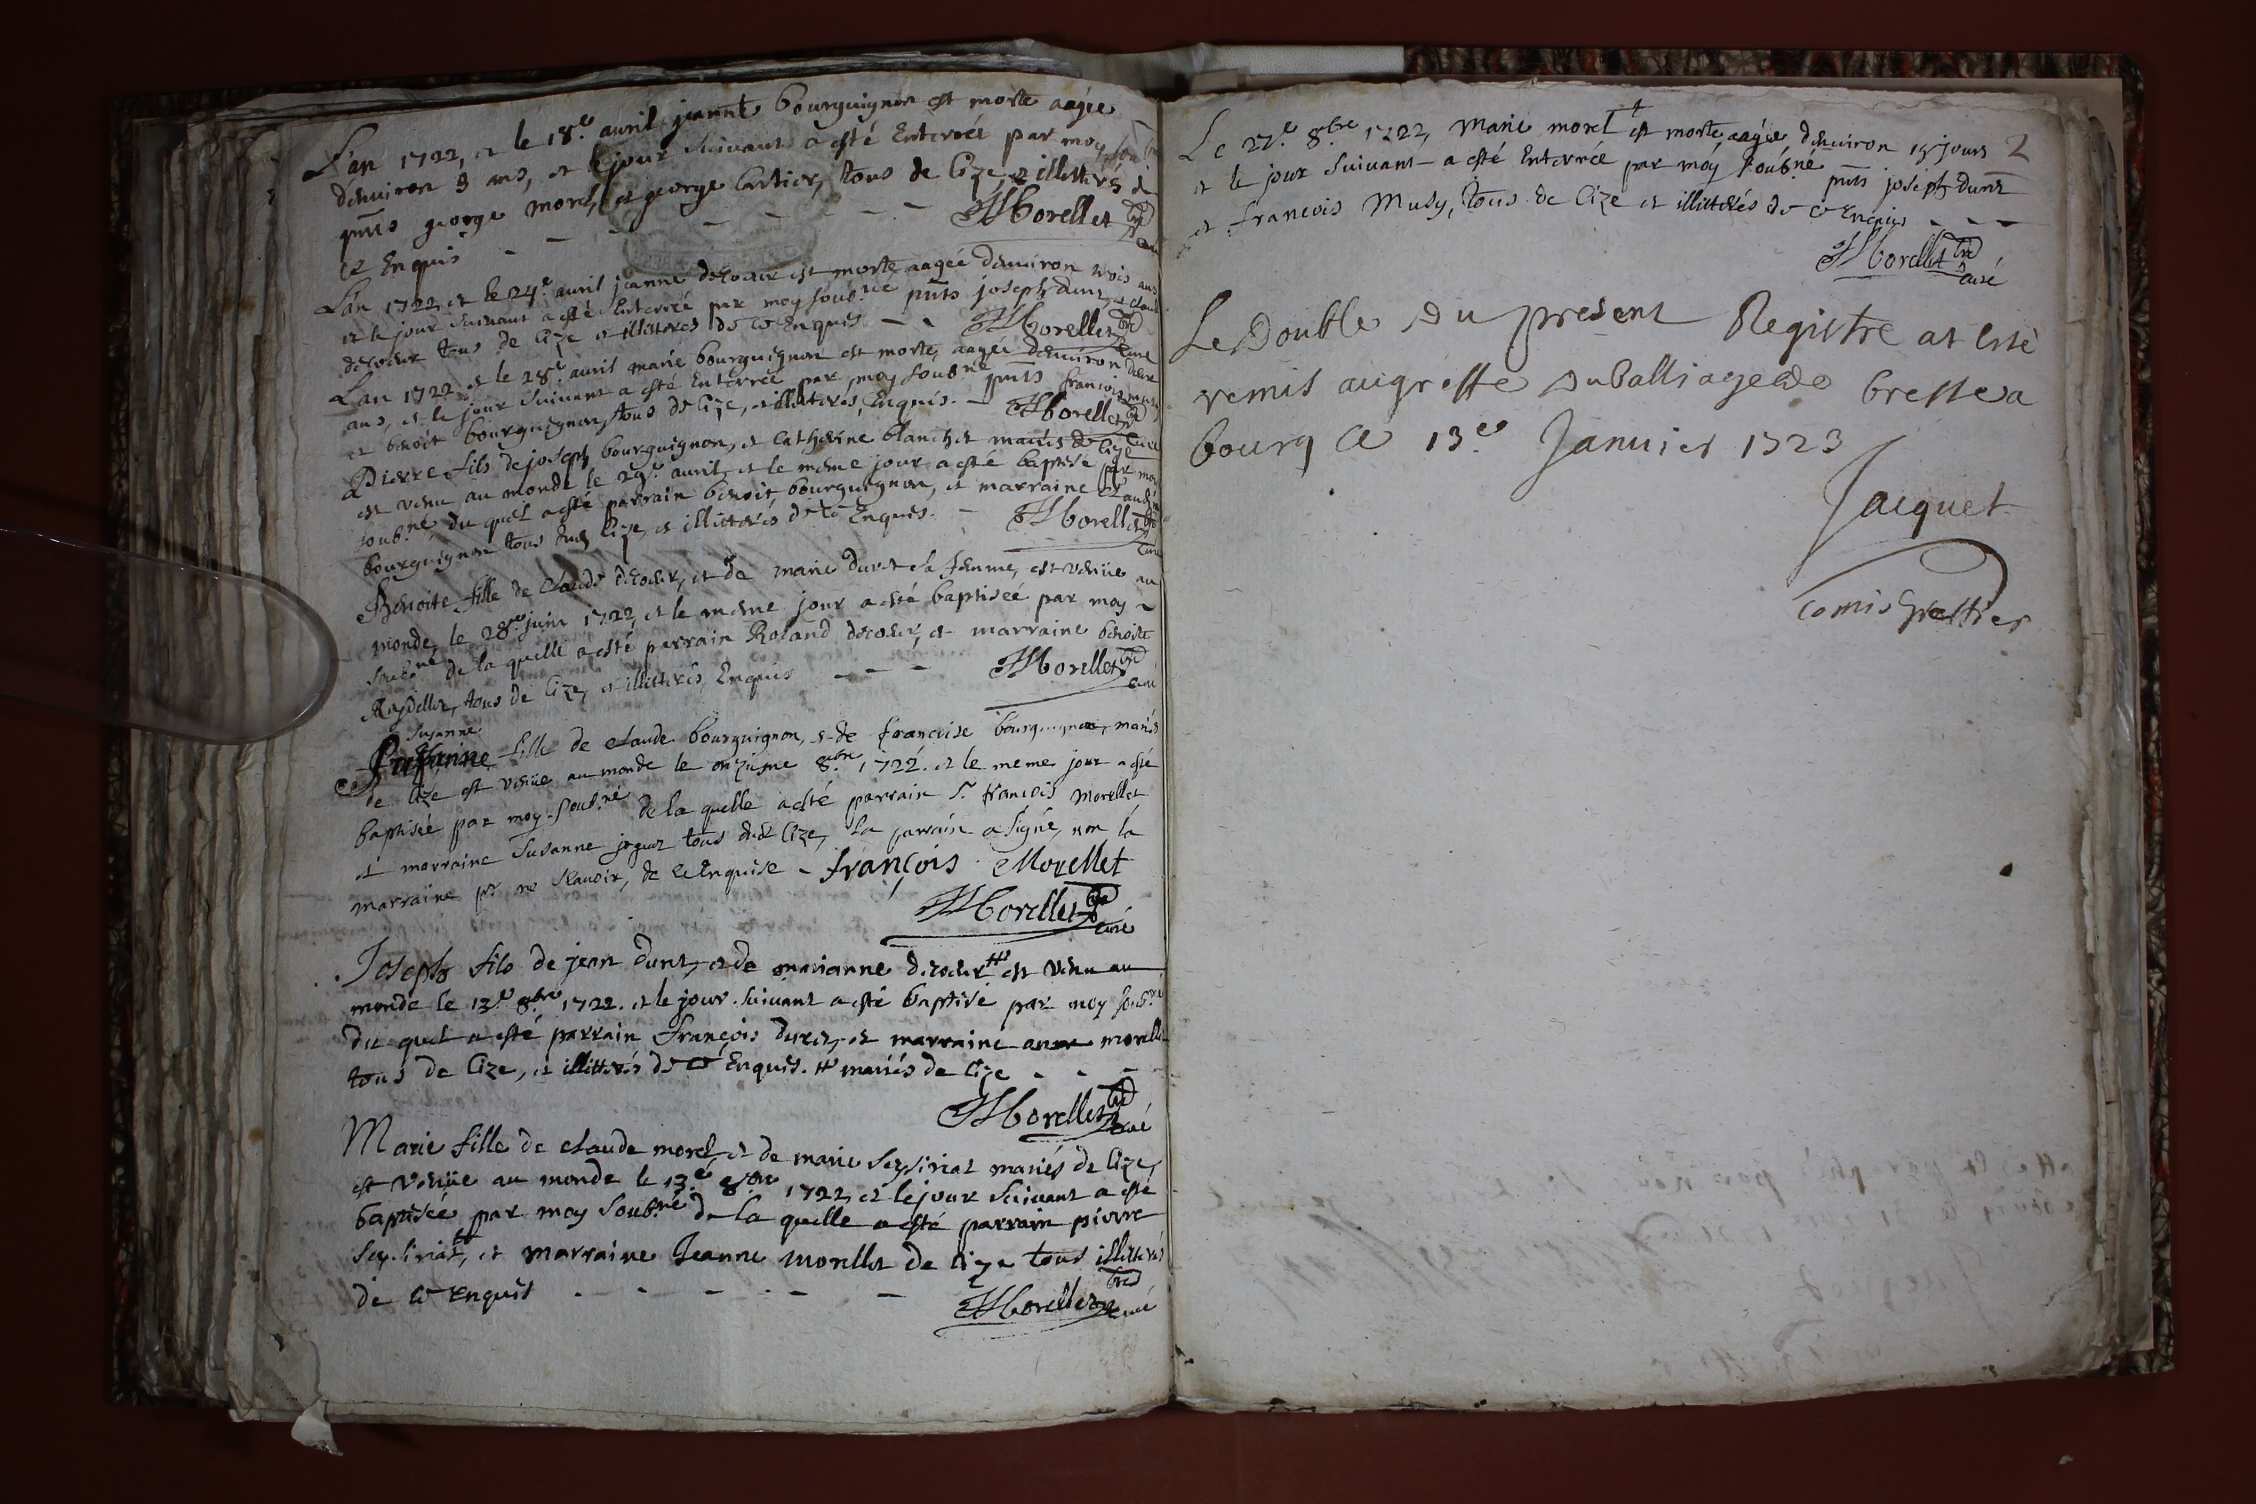 L'an 1722, et le 18.e avril jeanne bourguignon est morte aagée
d'enuiron 3 ans, et le jour suiuant a esté Enterrée par moy soub.né
pnts george morel, et george cartier, tous de Cize et illitterés de
ce Enquis - - - - - - HMorellet
curé
L'an 1722, et le 24.e avril jeanne decoeur est morte aagée d'enuiron trois ans
et le jour suiuant a esté Enterrée par moy soub.né pnts joseph duret, et claude
decoeur tous de Cize et illitterés de ce Enquis - - HMorellet
curé
L'an 1722 et le 28.e avril marie bourguignon est morte, aagée d'enuiron deux
ans, et le jour suiuant a esté Enterrée par moy soub.né pnts francois musy
et benoit bourguignon, tous de Cize, et illitterés, Enquis. - HMorellet
curé
Pierre fils de joseph bourguignon, et Catherine blanchet mariés de Cize
est venu au monde le 29.e avril, et le meme jour a esté baptisé par moy
soub.né du quel a esté parrain benoit bourguignon, et marraine Claudine
bourguignon tous dud Cize, et illitterés de ce Enquis. - HMorellet
curé
Benoite fille de Claude decoeur, et de marie duret sa femme, est venüe au
monde, le 28.e juin 1722, et le meme jour a esté baptisée par moy
soub.né de la quelle a esté parrain Roland decoeur, et marraine benoite
Reydellet, tous de Cize, et illitterés, Enquis - - - HMorellet
curé
Susanne
fille de claude bourguignon, et de francoise bourguignon, mariés
de Cize est venüe au monde le onzieme 8.bre 1722. et le meme jour a esté
baptisée par moy soub.né de la quelle a esté parrain S.r francois Morellet
et marraine Susanne joguet tous dud Cize, Le parrain a signé, non la
marraine pr ne scauoir, de ce Enquise - françois Morellet
HMorellet
curé
Joseph fils de jean duret, et de marianne decoeur # est venu au
monde le 13.e 8.bre 1722. et le jour suiuant a esté baptisé par moy soub.né
du quel a esté parrain François duret, et marraine anne morellet
tous de Cize, et illitterés de ce Enquis. # mariés de Cize - - -
HMorellet
curé
Marie fille de claude morel, et de marie seysiriat mariés de Cize,
est venüe au monde le 13.e 8.bre 1722, et le jour suiuant a esté
baptisée par moy soub.né de la quelle a esté parrain pierre
seysiriat, et marraine Jeanne morellet de Cize tous illitterés
de ce Enquis - - - - - HMorellet
curé
Le 27.e 8.bre 1722, Marie morel est morte aagée d'enuiron 15 jours 2
et le jour suiuant a esté Enterrée par moy soub.né pnts joseph duret
et francois Musy, tous de Cize et illitterés de ce Enquis - - -
HMorellet
curé
Le Double du present Registre at esté
remis au greffe du Balliage de bresse a
bourg ce 13.e Januier 1723
Jacquet
Comis Greffier